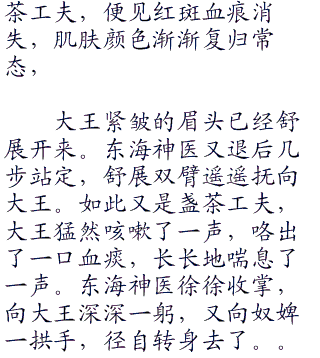 茶工夫，便见红斑血痕消
失，肌肤颜色渐渐复归常
态，
大王紧皱的眉头已经舒
展开来。东海神医又退后几
步站定，舒展双臂遥遥抚向
大王。如此又是盏茶工夫，
大王猛然咳嗽了一声，咯出
了一口血痰，长长地喘息了
一声。东海神医徐徐收掌，
向大王深深一躬，又向奴婢
一拱手，径自转身去了。。